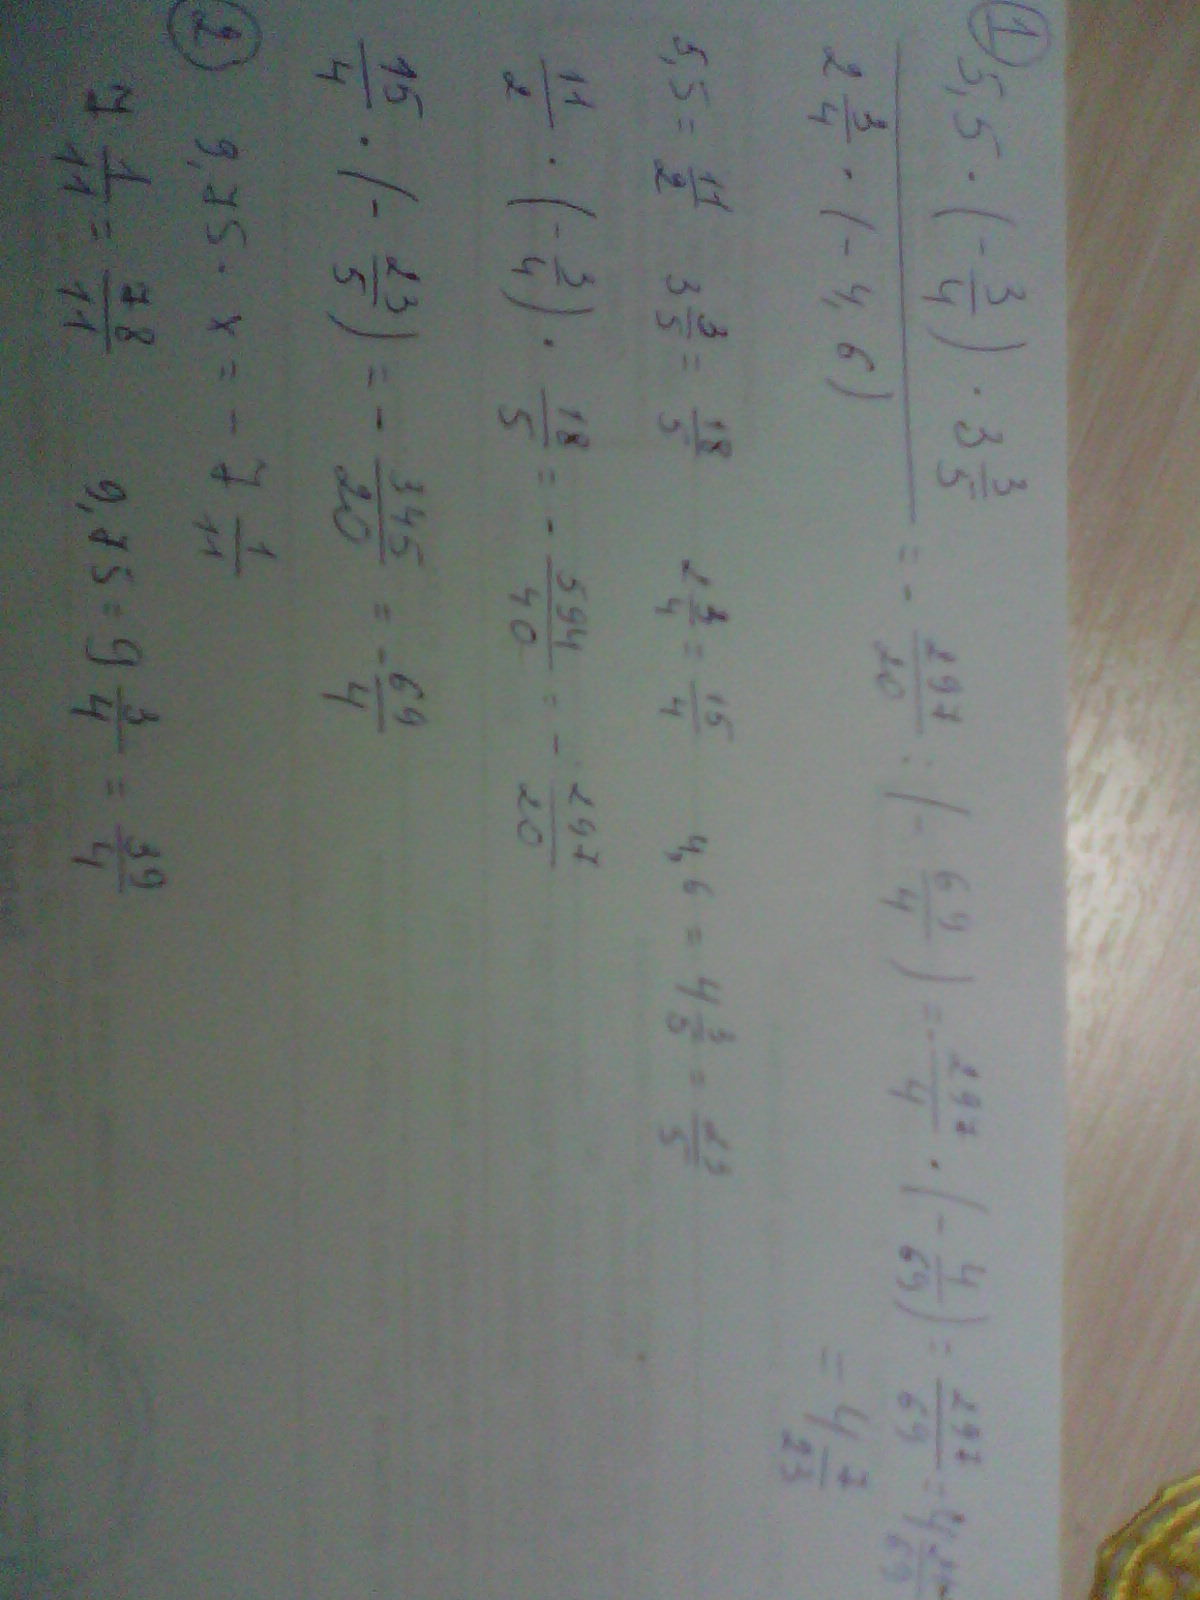 ① 5,5 · (-3/4) · 3 3/5 / 2 3/4 · (-4,6) = - 297/20 : (- 69/4) = - 297/4 · (- 4/69) = 297/69 = 4 21/69
= 4 7/23
5,5 = 11/2 3 3/5 = 18/5 2 3/4 = 15/4 4,6 = 4 3/5 = 23/5
11/2 · (-3/4) · 18/5 = - 594/40 = - 297/20
15/4 · (- 23/5) = - 345/20 = - 69/4
② 9,75 · x = - 7 1/11
7 1/11 = 78/11 9,75 = 9 3/4 = 39/4